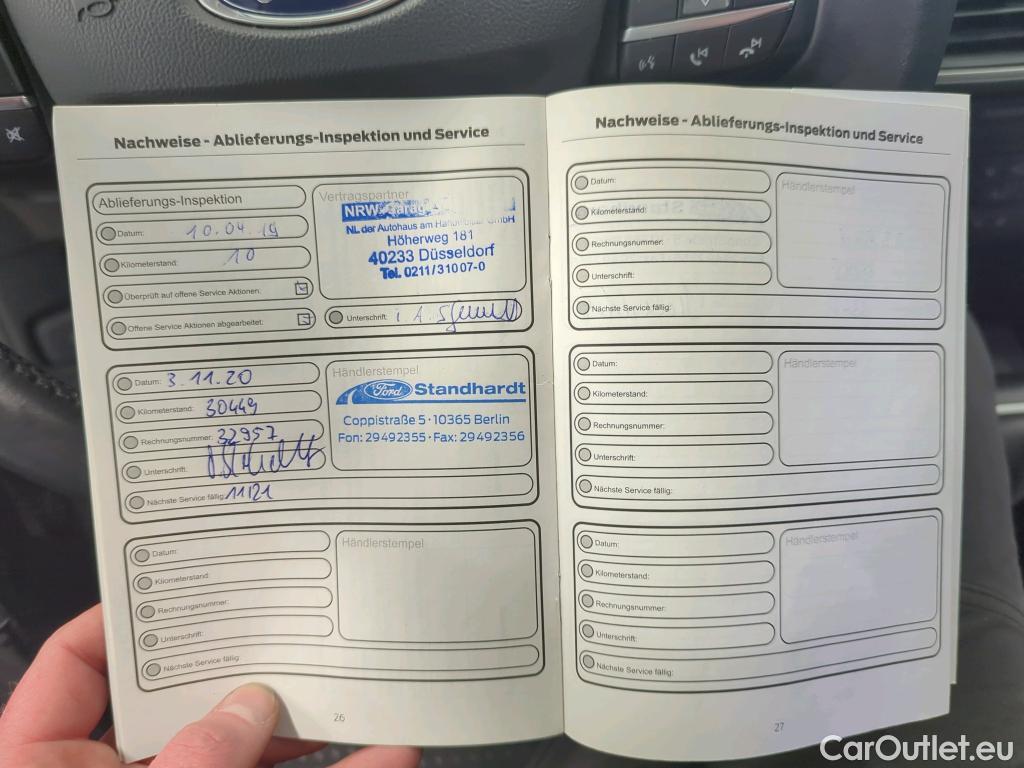 Nachweise - Ablieferungs-Inspektion und Service
Ablieferungs-Inspektion
Datum: 10.04.19
Kilometerstand: 10
Überprüft auf offene Service Aktionen:
Offene Service Aktionen abgearbeitet:
Vertragspartner
NRW
NL der Autohaus am GmbH
Höherweg 181
40233 Düsseldorf
Tel. 0211/31007-0
Unterschrift: i. A.
Datum: 3.11.20
Kilometerstand: 30449
Rechnungsnummer: 32957
Unterschrift:
Nächste Service fällig: 11/21
Händlerstempel
Ford Standhardt
Coppistraße 5 · 10365 Berlin
Fon: 29492355 · Fax: 29492356
Datum:
Kilometerstand:
Rechnungsnummer:
Unterschrift:
Nächste Service fällig:
Händlerstempel
26
Nachweise - Ablieferungs-Inspektion und Service
Datum:
Kilometerstand:
Rechnungsnummer:
Unterschrift:
Nächste Service fällig:
Händlerstempel
Datum:
Kilometerstand:
Rechnungsnummer:
Unterschrift:
Nächste Service fällig:
Händlerstempel
Datum:
Kilometerstand:
Rechnungsnummer:
Unterschrift:
Nächste Service fällig:
Händlerstempel
27
CarOutlet.eu